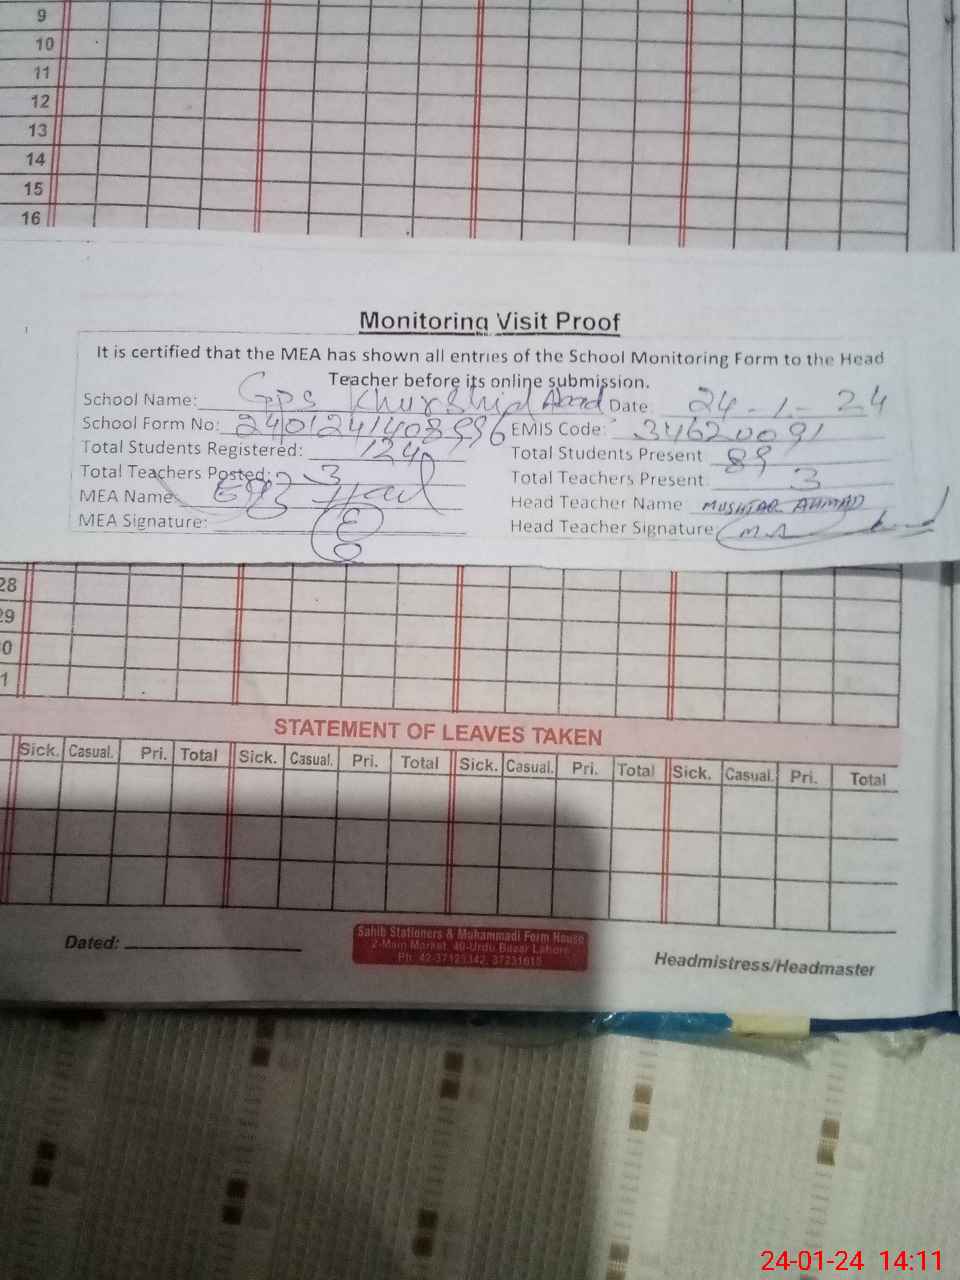 9
10
11
12
13
14
15
16
Monitoring Visit Proof
It is certified that the MEA has shown all entries of the School Monitoring Form to the Head
Teacher before its online submission.
School Name: GPS Khurshid Abad Date: 24-1-24
School Form No: EMIS Code: 34620091
Total Students Registered: 124 Total Students Present 89
Total Teachers Posted: 3 Total Teachers Present 3
MEA Name: Head Teacher Name MUSHTAQ AHMAD
MEA Signature: Head Teacher Signature
28
29
30
31
STATEMENT OF LEAVES TAKEN
Sick. Casual. Pri. Total Sick. Casual. Pri. Total Sick. Casual. Pri. Total Sick. Casual. Pri. Total
Dated:
Sahib Stationers & Muhammadi Form House
2-Main Market, 40-Urdu Bazar Lahore.
Headmistress/Headmaster
24-01-24 14:11